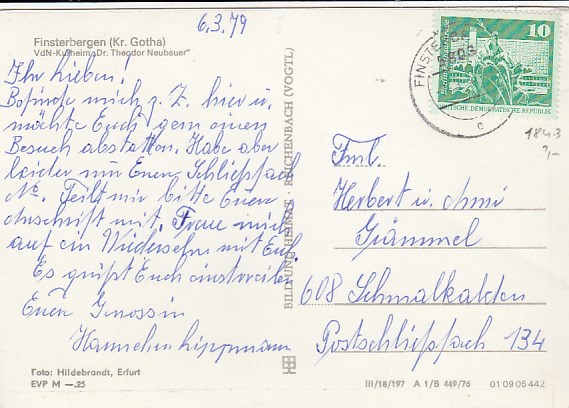 6.3.79
Finsterbergen (Kr. Gotha)
VdN-Kurheim „Dr. Theodor Neubauer"
Ihr Lieben!
Befinde mich z. Z. hier u.
möchte Euch gern einen
Besuch abstatten. Habe aber
leider nur Euer Schließfach
No. Teilt mir bitte Euere
Anschrift mit. Freue mich
auf ein Wiedersehn mit Euch.
Es grüßt Euch einstweilen
Euere Genossin
Foto: Hildebrandt, Erfurt
EVP M —.25
BILD UND HEIMAT REICHENBACH (VOGTL)
10
DEUTSCHE DEMOKRATISCHE REPUBLIK
c
1843
Fml.
Herbert u. Anni
Grämmel
608 Schmalkalden
Postschließfach 134
III/18/197 A 1/B 449/76 01 09 05 442